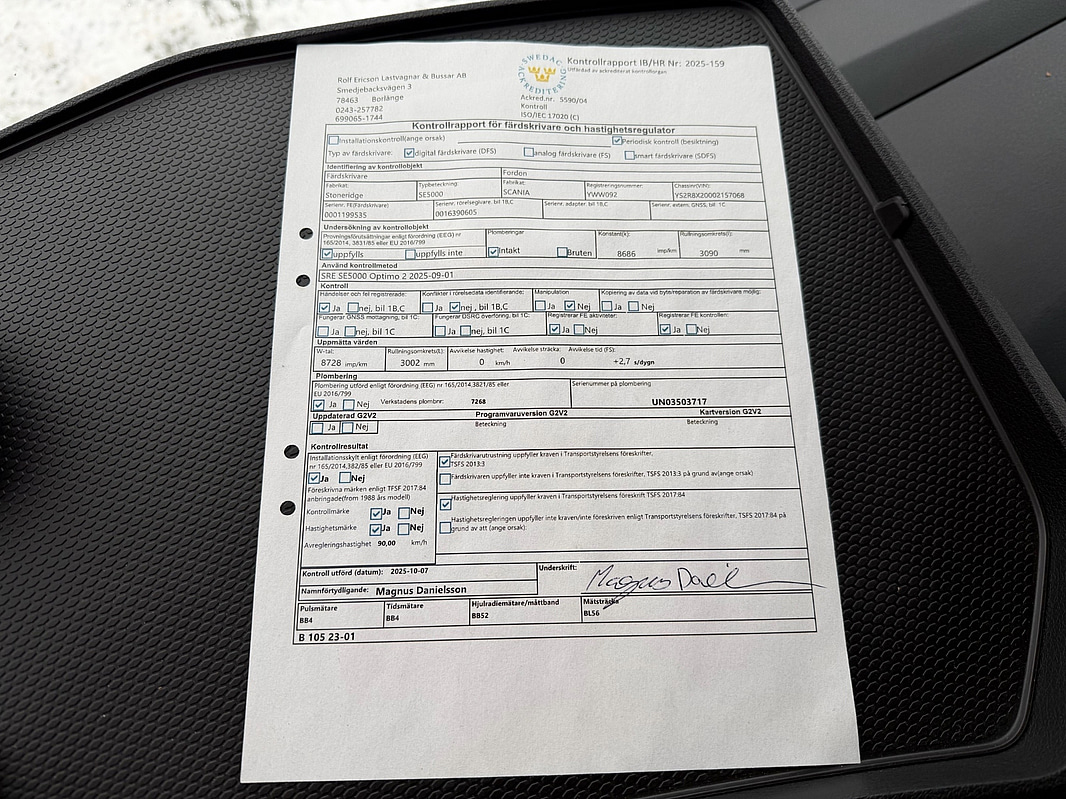 Rolf Ericson Lastvagnar & Bussar AB
Smedjebacksvägen 3
78463 Borlänge
0243-257782
699065-1744
SWEDAC ACKREDITERING
Ackred.nr. 5590/04
Kontroll
ISO/IEC 17020 (C)
Kontrollrapport IB/HR Nr: 2025-159
Utfärdad av ackrediterat kontrollorgan
Kontrollrapport för färdskrivare och hastighetsregulator
Installationskontroll(ange orsak) Periodisk kontroll (besiktning)
Typ av färdskrivare: digital färdskrivare (DFS) analog färdskrivare (FS) smart färdskrivare (SDFS)
Identifiering av kontrollobjekt
Färdskrivare Fordon
Fabrikat: Typbeteckning: Fabrikat: Registreringsnummer: Chassinr(VIN):
Stoneridge SE5000 SCANIA YWW092 YS2R8X20002157068
Serienr, FE(Färdskrivare) Serienr, rörelsegivare, bil 1B,C Serienr, adapter, bil 1B,C Serienr, extern, GNSS, bil: 1C
0001199535 0016390605
Undersökning av kontrollobjekt
Provningsförutsättningar enligt förordning (EEG) nr
165/2014, 3831/85 eller EU 2016/799
uppfylls uppfylls inte
Plomberingar
Intakt Bruten
Konstant(k): Rullningsomkrets(l):
8686 imp/km 3090 mm
Använd kontrollmetod
SRE SE5000 Optimo 2 2025-09-01
Kontroll
Händelser och fel registrerade: Konflikter i rörelsedata identifierande: Manipulation Kopiering av data vid byte/reparation av färdskrivare möjlig:
Ja nej, bil 1B,C Ja nej , bil 1B,C Ja Nej Ja Nej
Fungerar GNSS mottagning, bil 1C: Fungerar DSRC överföring, bil 1C: Registrerar FE aktiviteter: Registrerar FE kontrollen:
Ja nej, bil 1C Ja nej, bil 1C Ja Nej Ja Nej
Uppmätta värden
W-tal: Rullningsomkrets(L): Avvikelse hastighet: Avvikelse sträcka: Avvikelse tid (FS):
8728 imp/km 3002 mm 0 km/h 0 +2,7 s/dygn
Plombering
Plombering utförd enligt förordning (EEG) nr 165/2014,3821/85 eller
EU 2016/799
Ja Nej Verkstadens plombnr: 7268
Serienummer på plombering
UN03503717
Uppdaterad G2V2 Programvaruversion G2V2 Kartversion G2V2
Ja Nej Beteckning Beteckning
Kontrollresultat
Installationsskylt enligt förordning (EEG)
nr 165/2014,382/85 eller EU 2016/799
Ja Nej
Föreskrivna märken enligt TFSF 2017:84
anbringade(from 1988 års modell)
Kontrollmärke Ja Nej
Hastighetsmärke Ja Nej
Avregleringshastighet 90,00 km/h
Färdskrivarutrustning uppfyller kraven i Transportstyrelsens föreskrifter,
TSFS 2013:3
Färdskrivaren uppfyller inte kraven i Transportstyrelsens föreskrifter, TSFS 2013:3 på grund av(ange orsak)
Hastighetsreglering uppfyller kraven i Transportstyrelsens föreskrift TSFS 2017:84
Hastighetsregleringen uppfyller inte kraven/inte föreskriven enligt Transportstyrelsens föreskrifter, TSFS 2017:84 på
grund av att (ange orsak):
Kontroll utförd (datum): 2025-10-07
Underskrift:
Namnförtydligande: Magnus Danielsson
Pulsmätare Tidsmätare Hjulradiemätare/måttband Mätsträcka
BB4 BB4 BB52 BL56
B 105 23-01